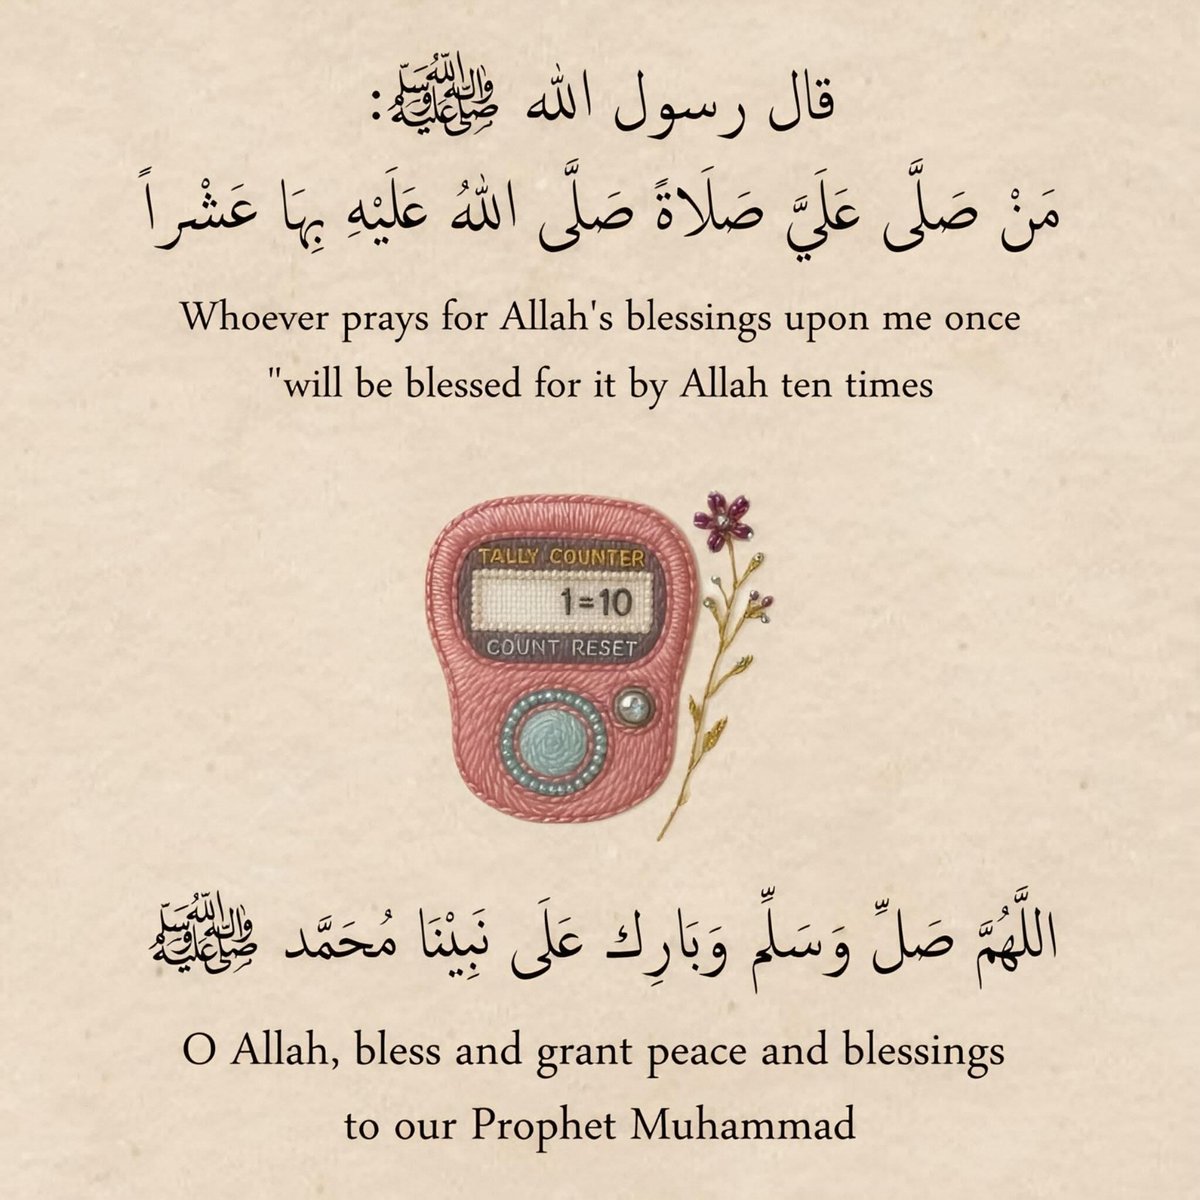 قال رسول الله ﷺ:
مَنْ صَلَّى عَلَيَّ صَلَاةً صَلَّى اللهُ عَلَيْهِ بِهَا عَشْراً
Whoever prays for Allah's blessings upon me once
"will be blessed for it by Allah ten times
TALLY COUNTER
1=10
COUNT RESET
اللَّهُمَّ صَلِّ وَسَلِّم وَبَارِك عَلَى نَبِيْنَا مُحَمَّد ﷺ
O Allah, bless and grant peace and blessings
to our Prophet Muhammad